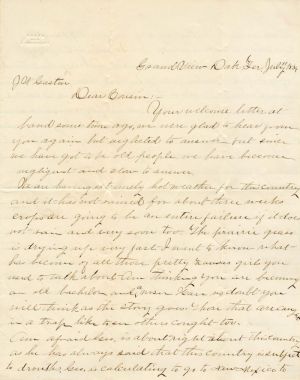 Grand View Dak Ter July
J W Castor
Dear Cousin:-
Your welcome letter at
hand some time ago, we were glad to hear from
you again but neglected to answer but since
we have got to be old people we have become
negligent and slow to answer.
We are having extremely hot weather for this country
and it has not rained for about three weeks
crops are going to be an entire failure if it does
not rain and very soon too. The prairie grass
is drying up very fast. I want to know what
has become of all those pretty girls you
used to talk about Can think you are
an old bachelor and no doubt you
will think as the story goes that
in a trap like to see others caught too.
I am afraid Geo. is about right about this country
as he has always said that this country is subject
to drouths, Geo. is calculating to go to New Mexico to